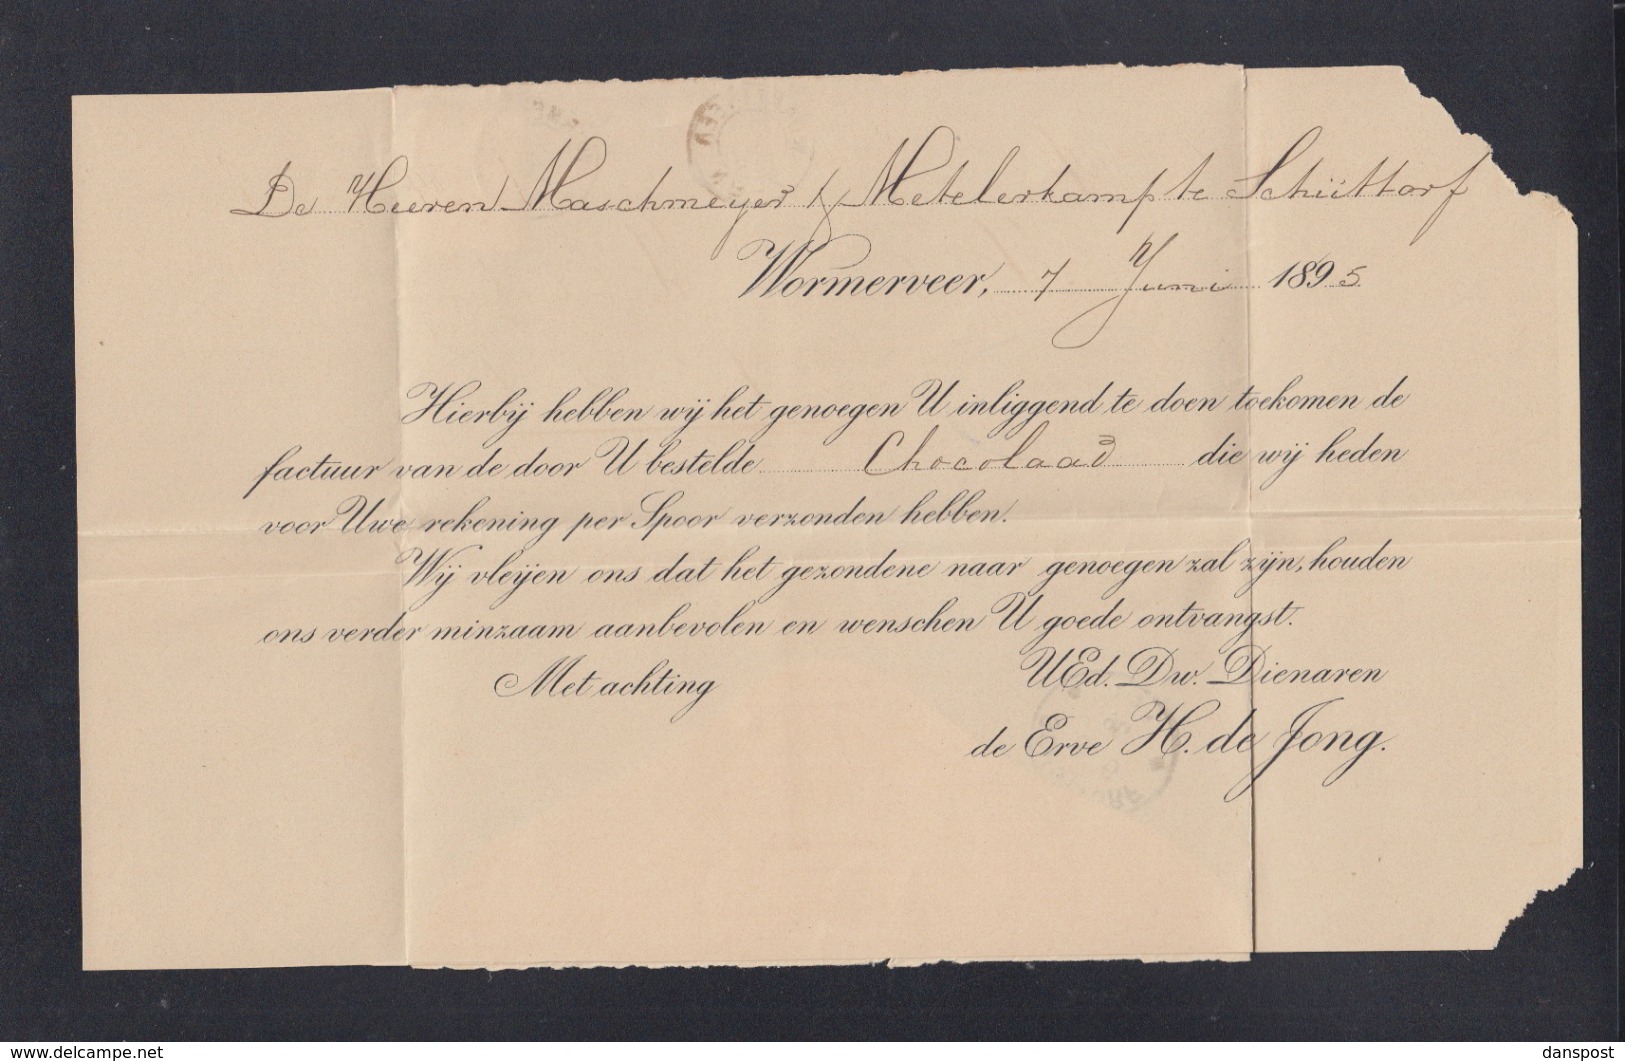 De Heeren Maschmeyer & Metelerkamp te Schüttorf
Wormerveer, 7 Juni 1895
Hierbij hebben wij het genoegen U inliggend te doen toekomen de
factuur van de door U bestelde Chocolaad die wij heden
voor Uwe rekening per Spoor verzonden hebben.
Wij vleijen ons dat het gezondene naar genoegen zal zijn, houden
ons verder minzaam aanbevolen en wenschen U goede ontvangst.
Met achting UEd. Dw. Dienaren
de Erve H. de Jong.
www.delcampe.net danspost